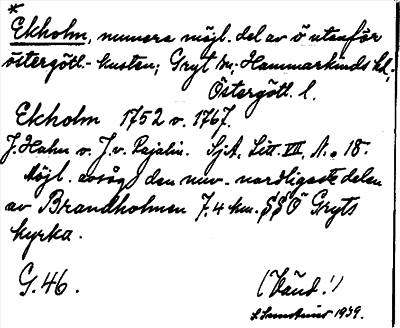 *
Ekholm, numera möjl. del av ö utanför
östergötl.-kusten; Gryt sn; Hammarkinds hd;
Östergötl. l.
Ekholm 1752 v. 1767.
J. Hahn v. J. v. Rajalin. SjA, Litt. VII, No 18.
Möjl. avsåg den nuv. nordligaste delen
av Brandholmen 7.4 km. SSÖ Gryts
kyrka.
G. 46.
(Vänd!)
1939.